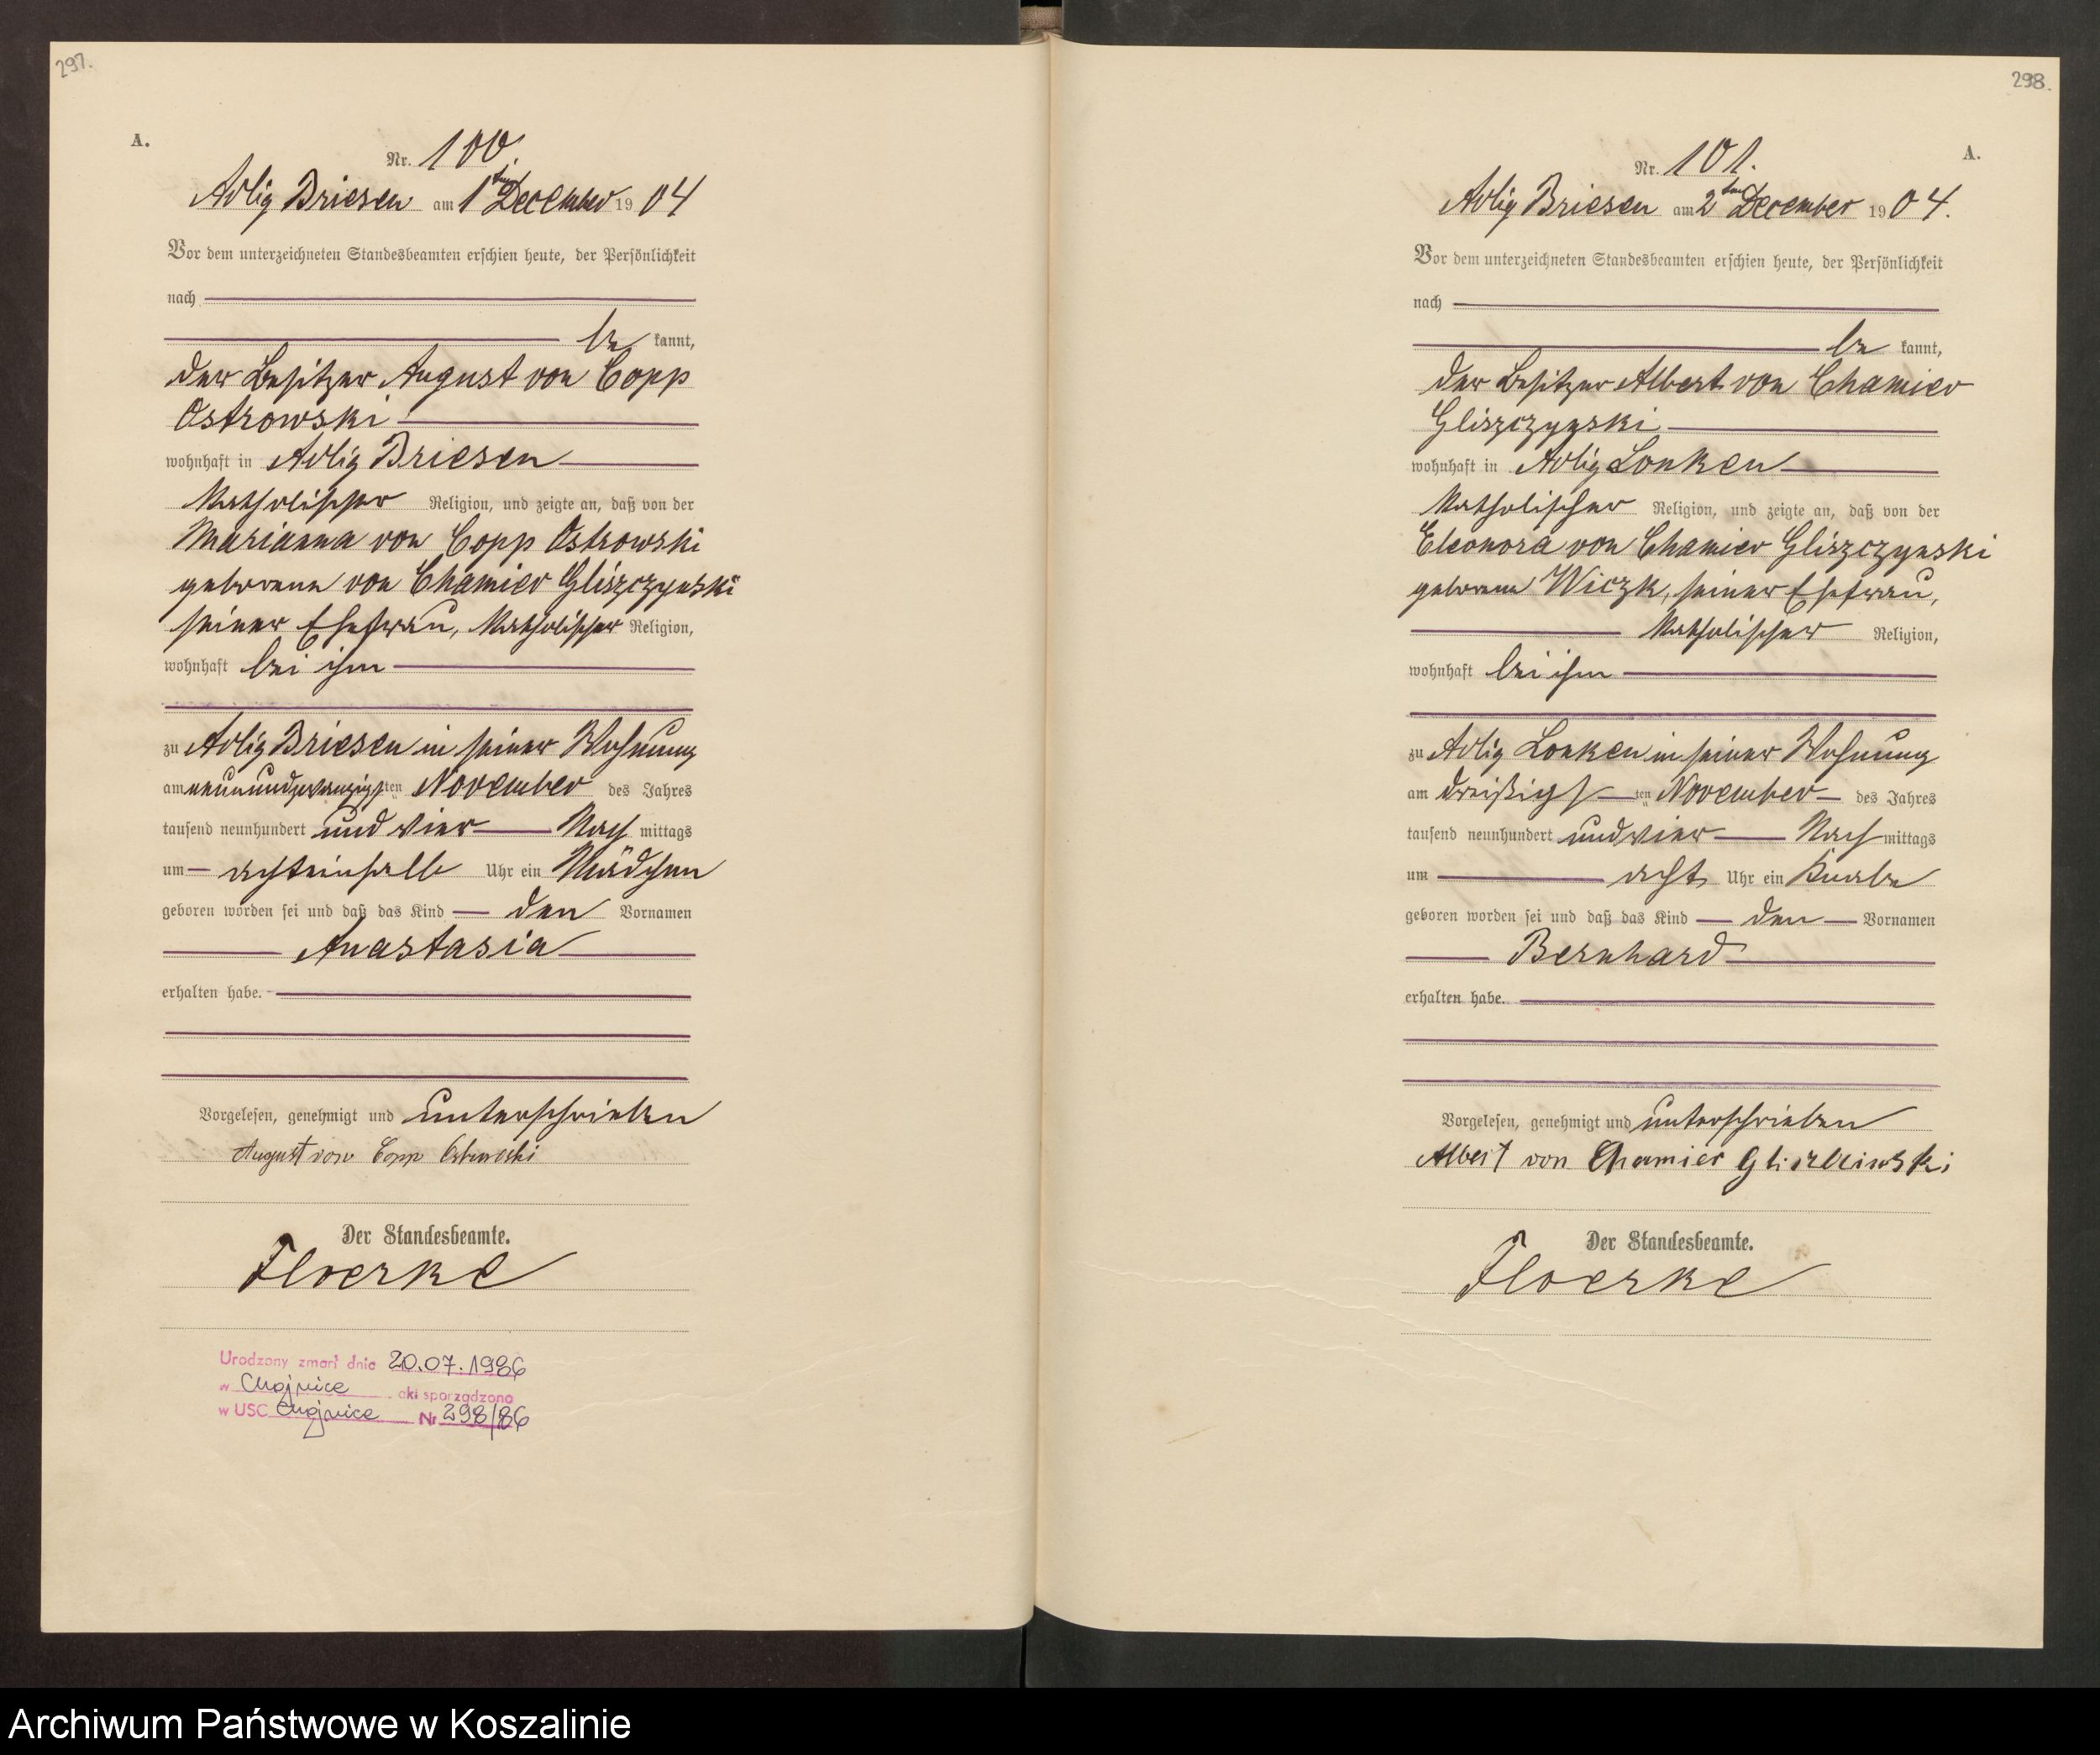 297.
A.
Nr. 100.
Adlig Briesen am 1ten December 1904
Vor dem unterzeichneten Standesbeamten erschien heute, der Persönlichkeit
nach
be kannt,
der Besitzer August von Copp
Ostrowski
wohnhaft in Adlig Briesen
katholischer Religion, und zeigte an, daß von der
Marianna von Copp Ostrowski
geborene von Chamier Gliszczynski
seiner Ehefrau, katholischer Religion,
wohnhaft bei ihm
zu Adlig Briesen in seiner Wohnung
am neunundzwanzigsten November des Jahres
tausend neunhundert und vier Nach mittags
um achteinhalb Uhr ein Mädchen
geboren worden sei und daß das Kind den Vornamen
Anastasia
erhalten habe.
Vorgelesen, genehmigt und unterschrieben
August von Copp Ostrowski
Der Standesbeamte.
Floerke
Urodzony zmarł dnia 20.07.1986
w Chojnice akt sporządzono
w USC Chojnice Nr 298/86
298.
A.
Nr. 101.
Adlig Briesen am 2ten December 1904.
Vor dem unterzeichneten Standesbeamten erschien heute, der Persönlichkeit
nach
be kannt,
der Besitzer Albert von Chamier
Gliszczynski
wohnhaft in Adlig Lonken
katholischer Religion, und zeigte an, daß von der
Eleonora von Chamier Gliszczynski
geborene Wiczk, seiner Ehefrau,
katholischer Religion,
wohnhaft bei ihm
zu Adlig Lonken in seiner Wohnung
am dreißigsten November des Jahres
tausend neunhundert und vier Nach mittags
um acht Uhr ein Knabe
geboren worden sei und daß das Kind den Vornamen
Bernhard
erhalten habe.
Vorgelesen, genehmigt und unterschrieben
Albert von Chamier
Der Standesbeamte.
Floerke
Archiwum Państwowe w Koszalinie